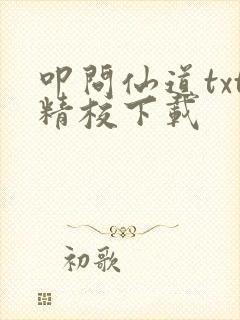 叩問仙道txt
精校下載
初歌